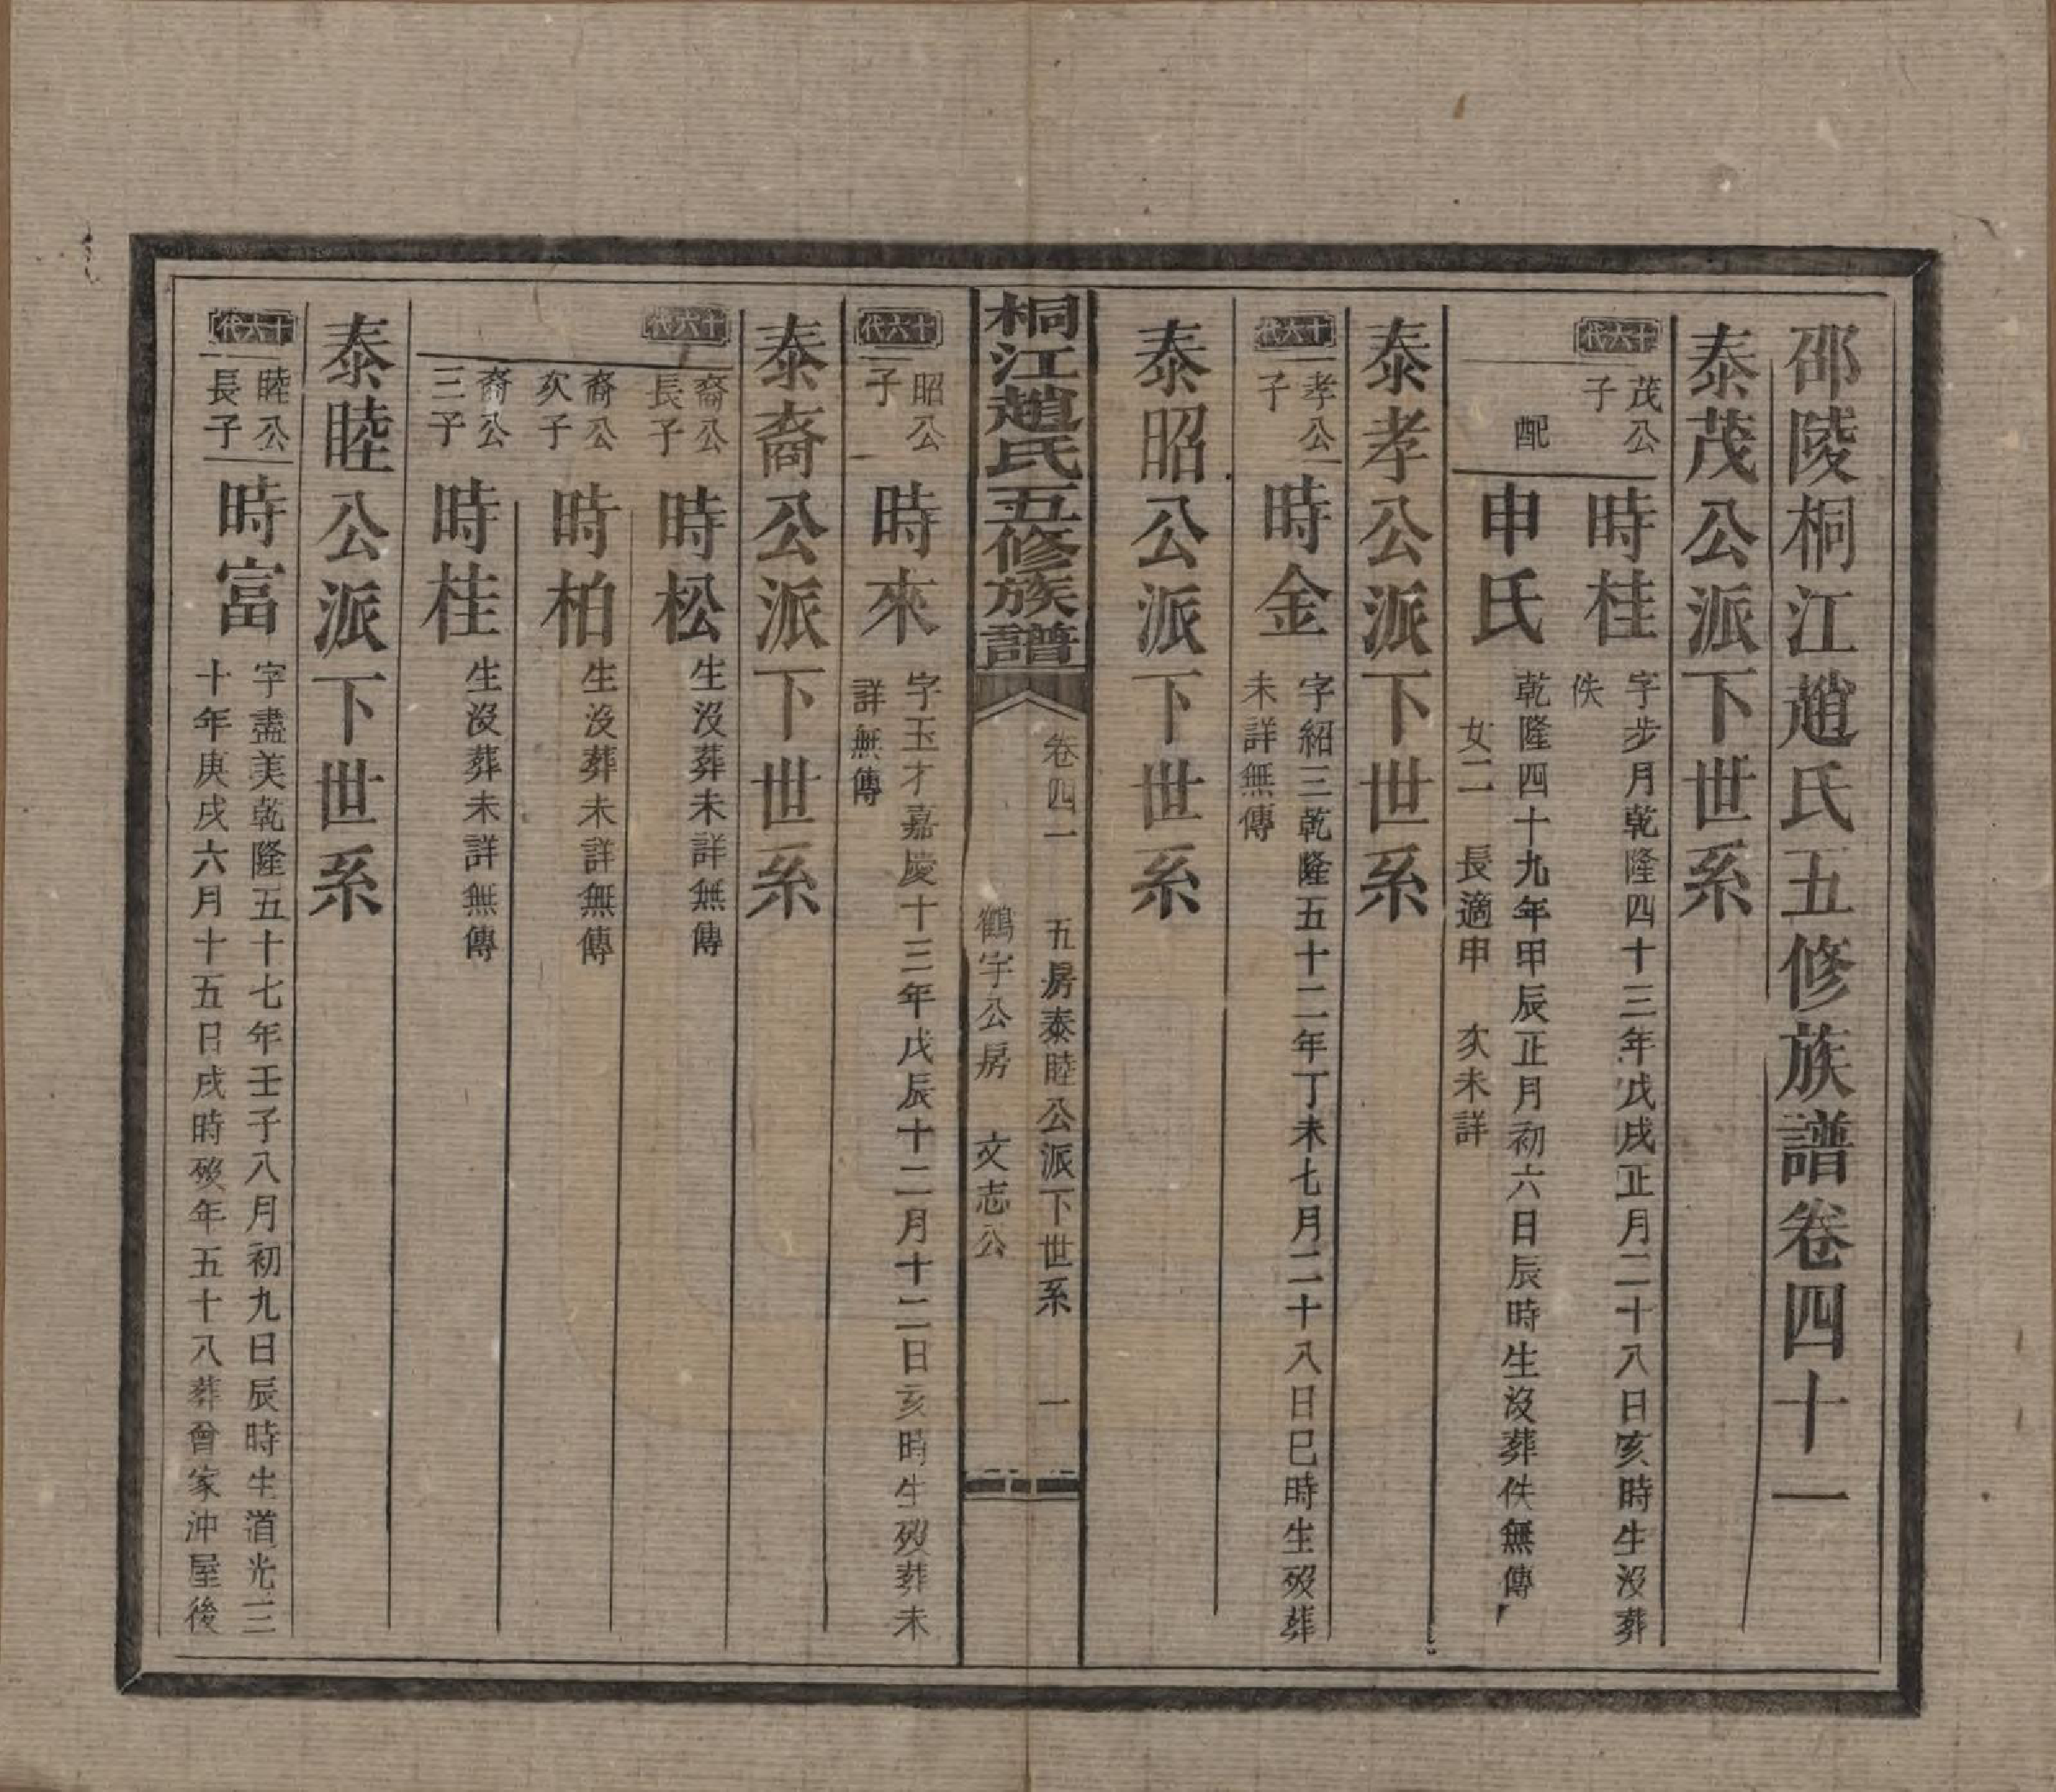 邵陵桐江趙氏五修族譜卷四十一
泰茂公派下世系
十六代
茂公
子
時桂
字步月乾隆四十三年戊戌正月二十八日亥時生沒葬
佚
配
申氏
乾隆四十九年甲辰正月初六日辰時生沒葬佚無傳
女二 長適申 次未詳
泰孝公派下世系
十六代
孝公
子
時金
字紹三乾隆五十二年丁未七月二十八日巳時生歿葬
未詳無傳
泰昭公派下世系
桐江趙氏五修族譜
卷四一 五房泰睦公派下世系 一
鶴宇公房 文志公
十六代
昭公
子
時來
字玉才嘉慶十三年戊辰十二月十二日亥時生歿葬未
詳無傳
泰裔公派下世系
十六代
裔公
長子
時松
生沒葬未詳無傳
裔公
次子
時柏
生沒葬未詳無傳
裔公
三子
時桂
生沒葬未詳無傳
泰睦公派下世系
十六代
睦公
長子
時富
字盡美乾隆五十七年壬子八月初九日辰時生道光三
十年庚戌六月十五日戌時歿年五十八葬曾家沖屋後